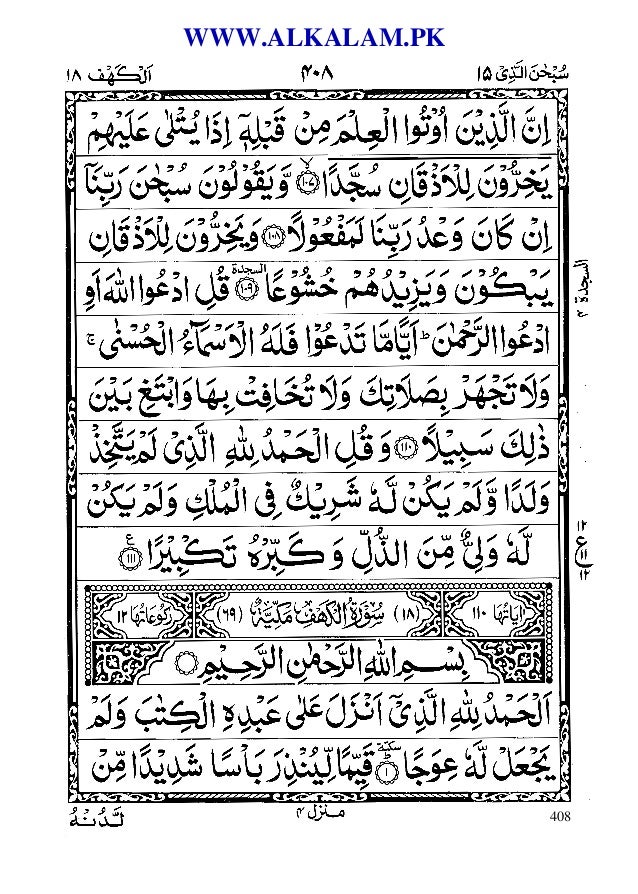 WWW.ALKALAM.PK
سُبْحٰنَ الَّذِیْ ۱۵ ۴۰۸ اَلْکَهْف ۱۸
اِنَّ الَّذِیْنَ اُوْتُوا الْعِلْمَ مِنْ قَبْلِهٖۤ اِذَا یُتْلٰی عَلَیْهِمْ
یَخِرُّوْنَ لِلْاَذْقَانِ سُجَّدًا ۙ﴿۱۰۷﴾ وَّیَقُوْلُوْنَ سُبْحٰنَ رَبِّنَاۤ
اِنْ کَانَ وَعْدُ رَبِّنَا لَمَفْعُوْلًا ﴿۱۰۸﴾ وَیَخِرُّوْنَ لِلْاَذْقَانِ
یَبْکُوْنَ وَیَزِیْدُهُمْ خُشُوْعًا ﴿۱۰۹﴾ السجدة قُلِ ادْعُوا اللّٰهَ اَوِ
السجدة ۴
ادْعُوا الرَّحْمٰنَ ؕ اَیًّامَّا تَدْعُوْا فَلَهُ الْاَسْمَآءُ الْحُسْنٰی ۚ
وَلَا تَجْهَرْ بِصَلَاتِكَ وَلَا تُخَافِتْ بِهَا وَابْتَغِ بَیْنَ
ذٰلِكَ سَبِیْلًا ﴿۱۱۰﴾ وَقُلِ الْحَمْدُ لِلّٰهِ الَّذِیْ لَمْ یَتَّخِذْ
وَلَدًا وَّلَمْ یَکُنْ لَّهٗ شَرِیْكٌ فِی الْمُلْكِ وَلَمْ یَکُنْ
لَّهٗ وَلِیٌّ مِّنَ الذُّلِّ وَکَبِّرْهُ تَکْبِیْرًا ﴿۱۱۱﴾ ع
۱۲ ع ۱۱ ۱۲
اٰیَاتُهَا ۱۱۰ (۱۸) سُوْرَةُ الْکَهْفِ مَکِّیَّةٌ (۶۹) رُکُوْعَاتُهَا ۱۲
بِسْمِ اللّٰهِ الرَّحْمٰنِ الرَّحِیْمِ
اَلْحَمْدُ لِلّٰهِ الَّذِیْۤ اَنْزَلَ عَلٰی عَبْدِهِ الْکِتٰبَ وَلَمْ
یَجْعَلْ لَّهٗ عِوَجًا ؕ سكتة ﴿۱﴾ قَیِّمًا لِّیُنْذِرَ بَاْسًا شَدِیْدًا مِّنْ
لَّدُنْهُ
منزل ۴
408